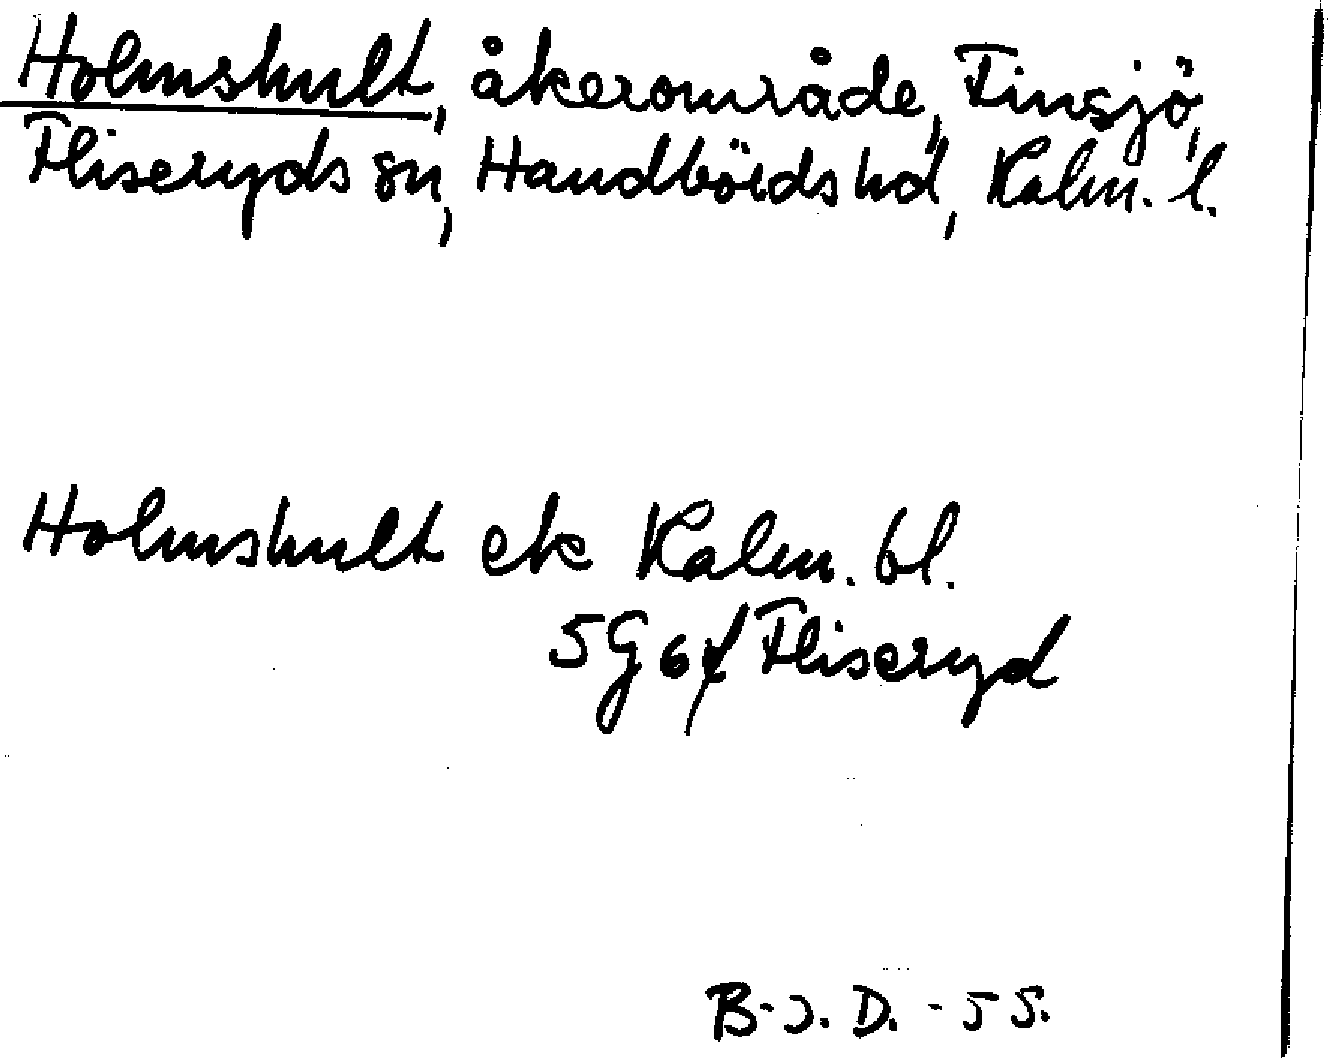 Holmshult, åkerområde, Finsjö,
Fliseryds sn, Handbörds hd, Kalm. l.
Holmshult ek Kalm. bl.
5G6f Fliseryd
B-J. D. - 55.